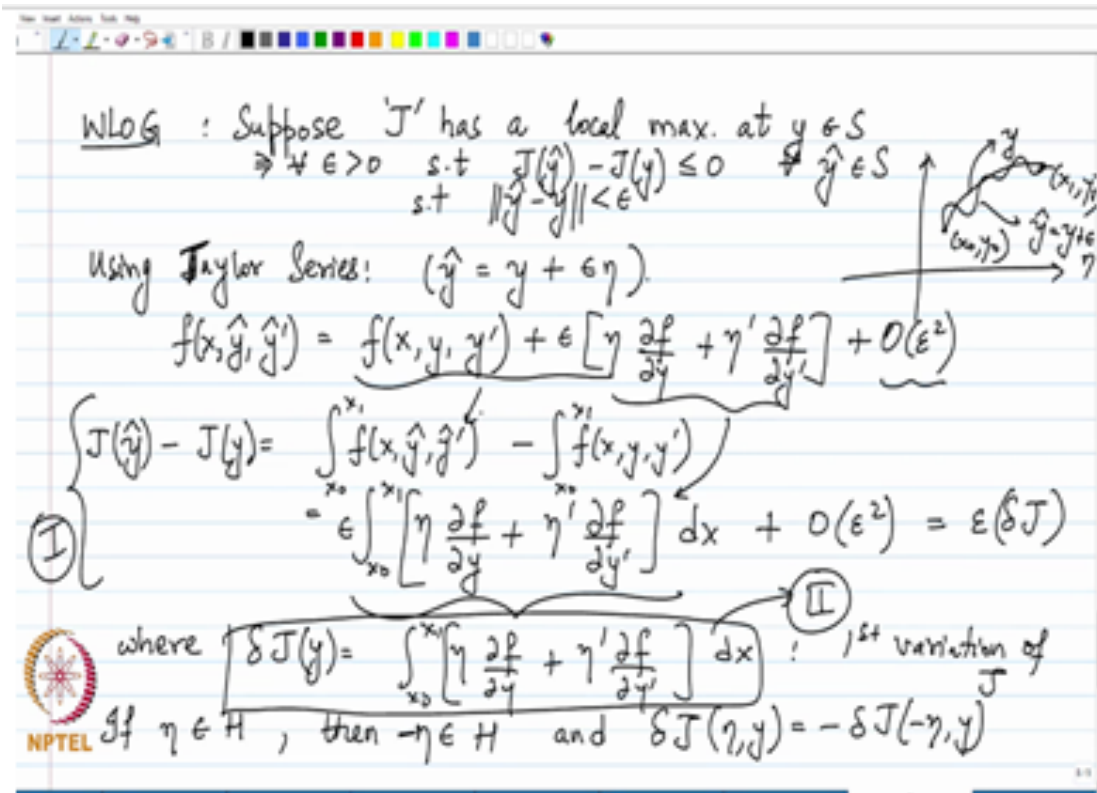 WLOG : Suppose 'J' has a local max. at y ∈ S
⇒ ∀ ε > 0 s.t J(ŷ) - J(y) ≤ 0 ∀ ŷ ∈ S
s.t ||ŷ - y|| < ε
y
(x₁, y₁)
(x₀, y₀)
ŷ = y + ε
η
Using Taylor Series: (ŷ = y + εη).
f(x, ŷ, ŷ') = f(x, y, y') + ε [η ∂f/∂y + η' ∂f/∂y'] + O(ε²)
J(ŷ) - J(y) = ∫_{x₀}^{x₁} f(x, ŷ, ŷ') - ∫_{x₀}^{x₁} f(x, y, y')
I = ε ∫_{x₀}^{x₁} [η ∂f/∂y + η' ∂f/∂y'] dx + O(ε²) = ε(δJ)
II
where δJ(y) = ∫_{x₀}^{x₁} [η ∂f/∂y + η' ∂f/∂y'] dx : 1st variation of
J
If η ∈ H, then -η ∈ H and δJ(η, y) = -δJ(-η, y)
NPTEL